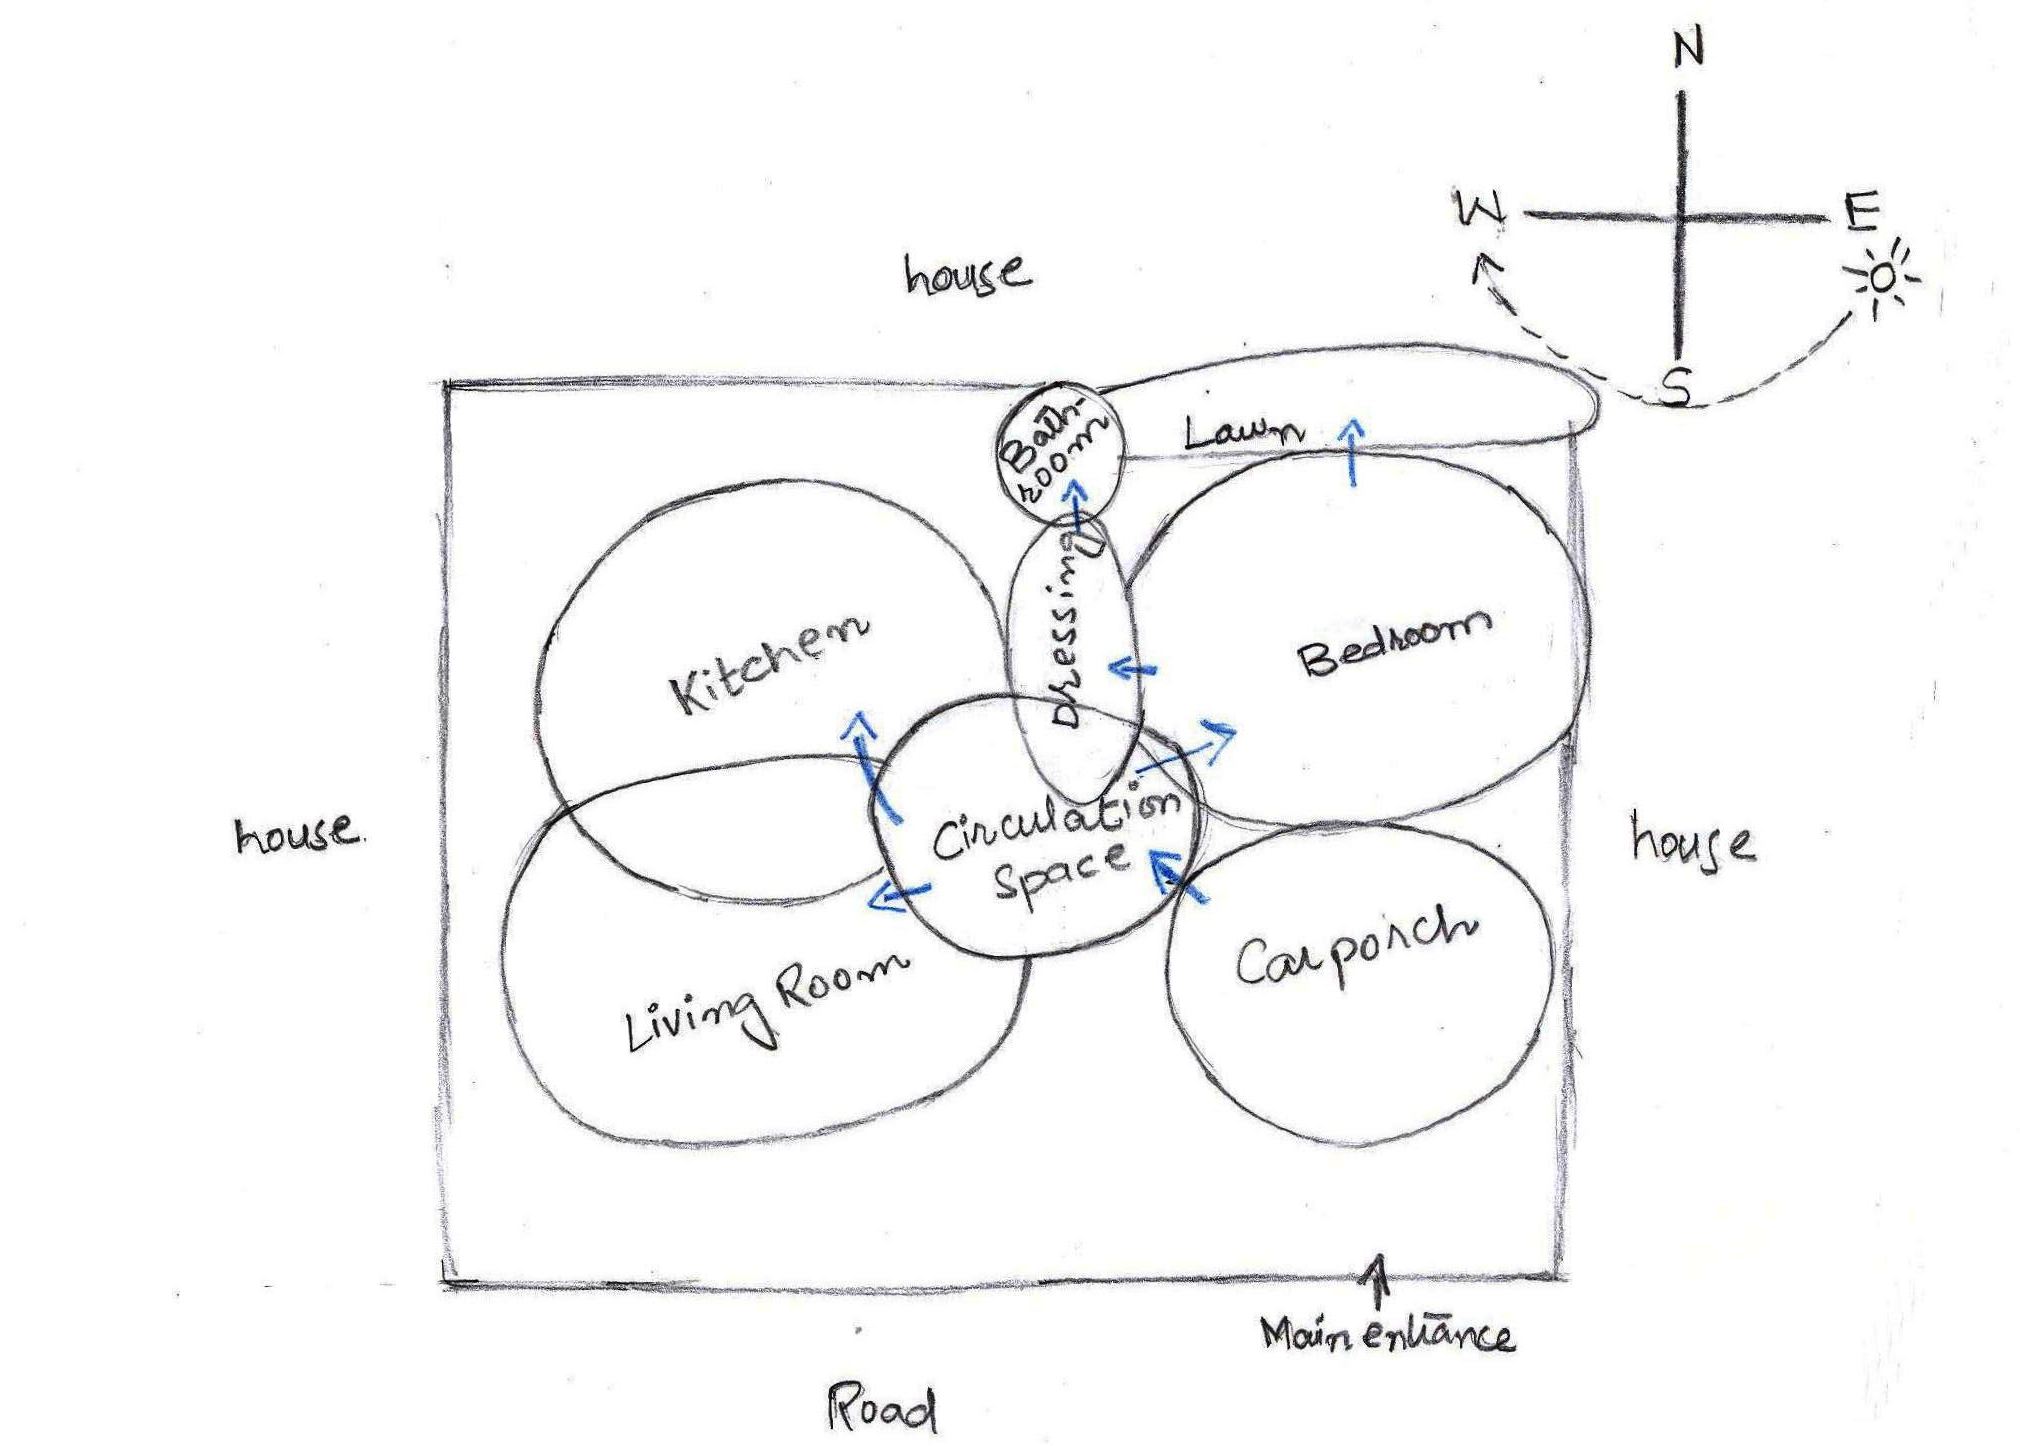 N
W E
S
house
Bath-
room
Lawn
Dressing
Kitchen
Bedroom
house
Circulation
Space
house
Carporch
Living Room
Main entrance
Road